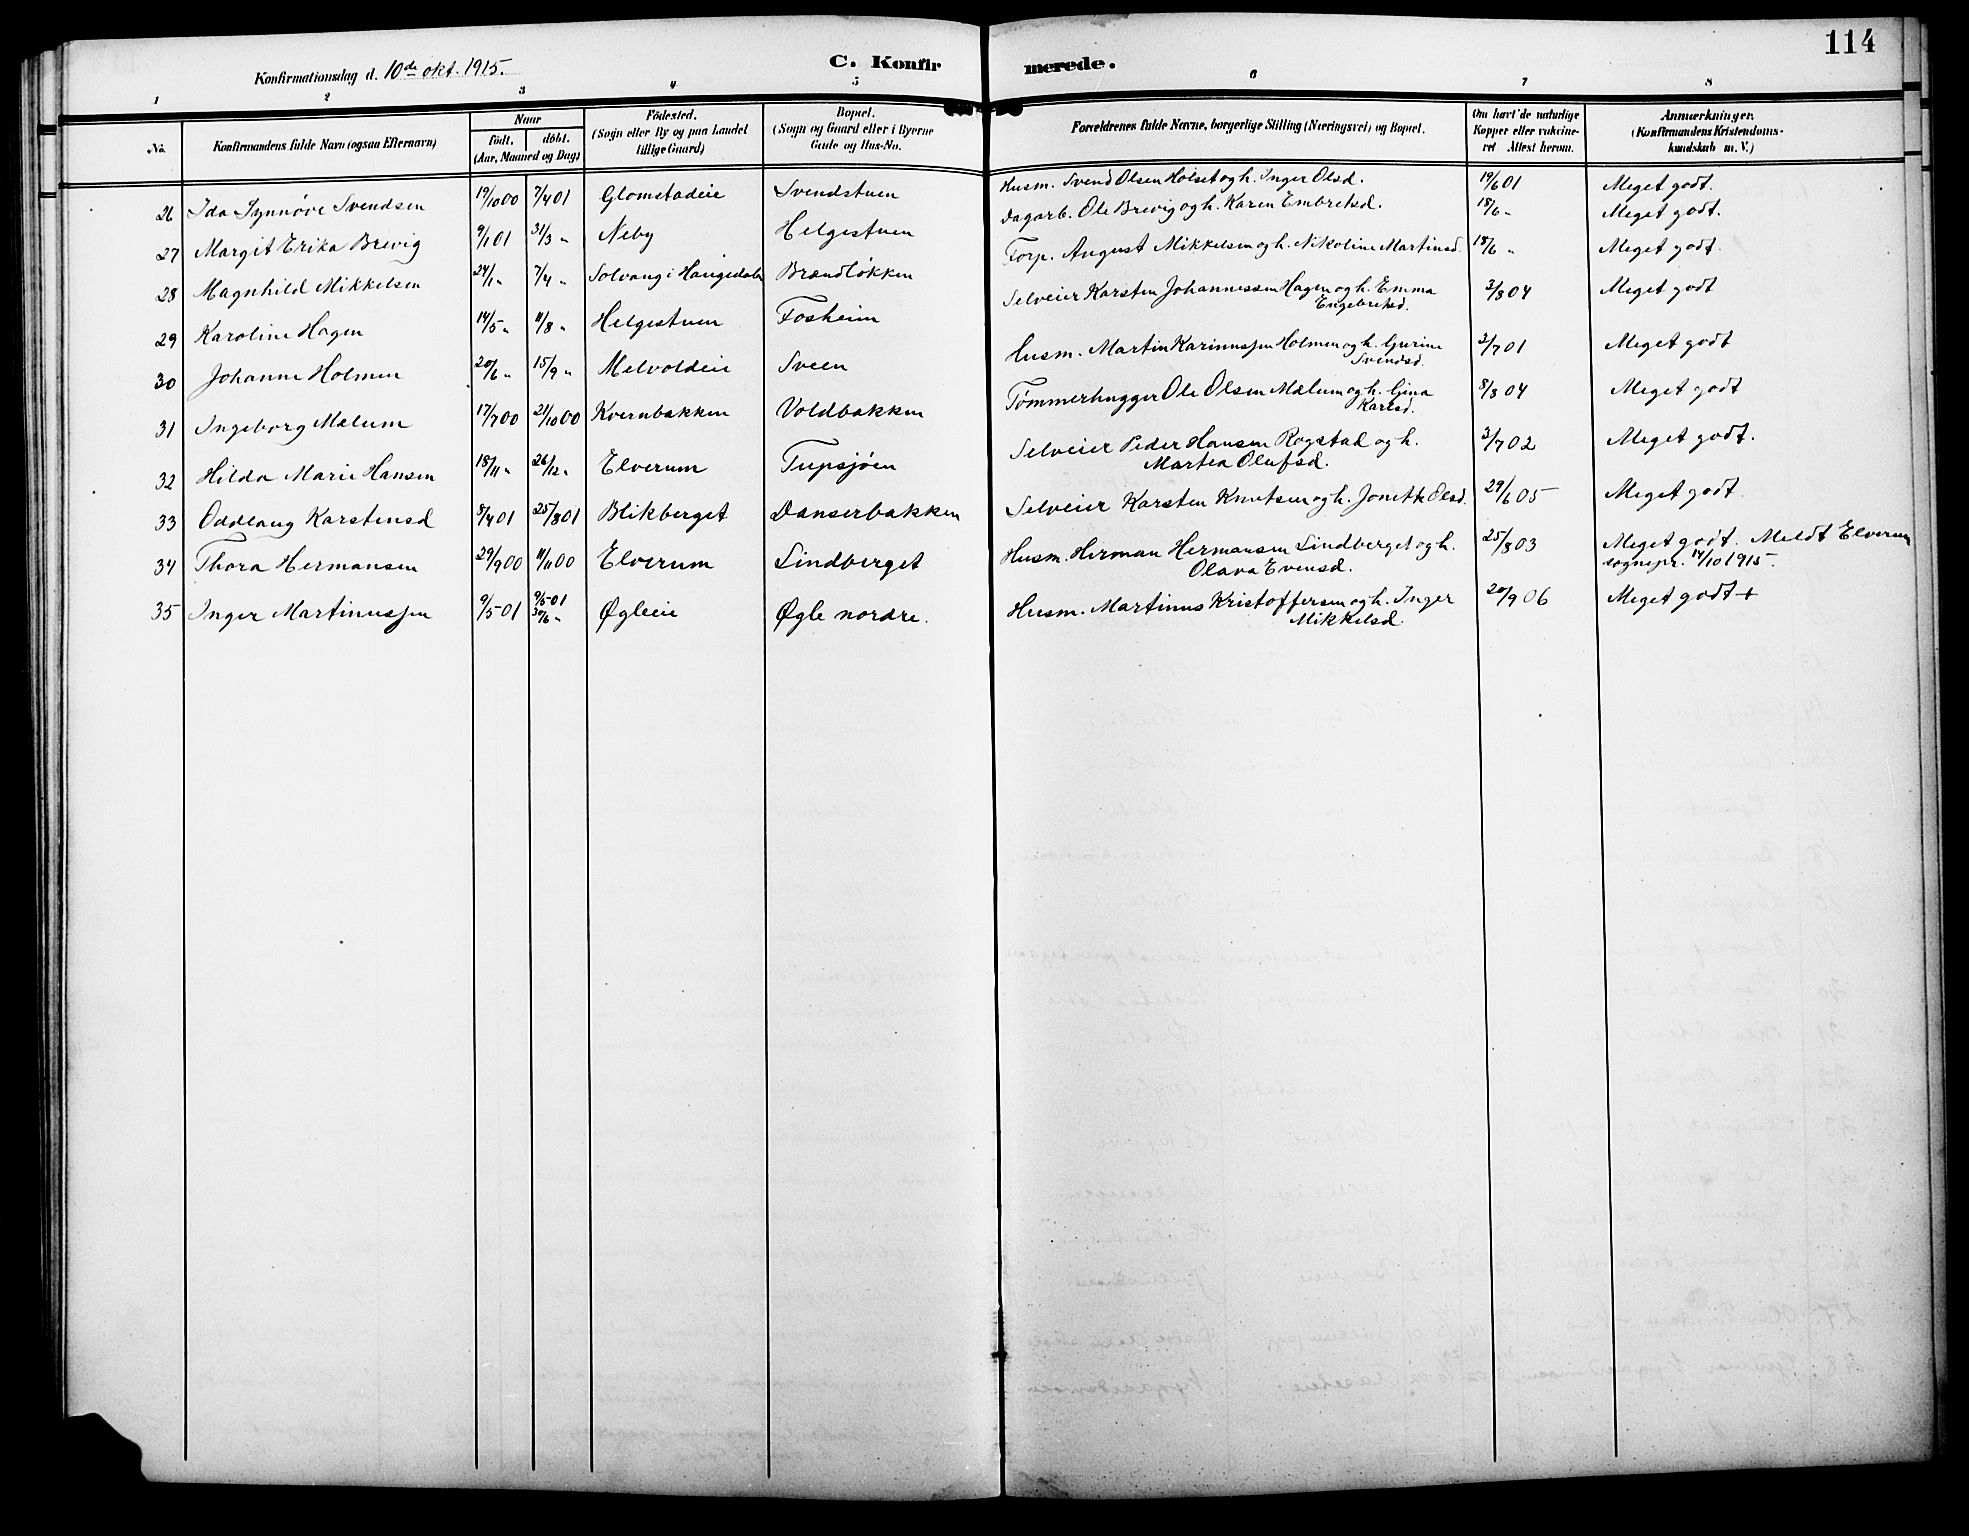 114
Konfirmationsdag d. 10de okt. 1915.
C. Konfirmerede.
1 2 3 4 5 6 7 8
No.
Konfirmandens fulde Navn (ogsaa Efternavn)
Naar
födt. döbt.
(Aar, Maaned og Dag)
Födested.
(Sogn eller By og paa Landet
tillige Gaard)
Bopæl.
(Sogn og Gaard eller i Byerne
Gade og Hus-No.
Forældrenes fulde Navne, borgerlige Stilling (Næringsvei) og Bopæl.
Om havt de naturlige
Kopper eller vaksine-
ret Attest herom.
Anmærkninger.
(Konfirmandens Kristendoms-
kundskab m. V.)
26 Ida Synnøve Svendsen 19/10 00 7/4 01 Glomstadeie Svendstuen Husm. Svend Olsen Holset og h. Inger Olsd. 19/6 01 Meget godt.
27 Margit Erika Brevig 9/1 01 31/3 " Neby Helgestuen Dagarb. Ole Brevig og h. Karen Embretsd. 18/6 " Meget godt.
28 Magnhild Mikkelsen 24/1 " 7/4 " Solvang i Haugedalen Brændløkken Forp. August Mikkelsen og h. Nikoline Martinsd. 18/6 " Meget godt.
29 Karoline Hagen 14/5 " 11/8 " Helgestuen Fosheim Selveier Karsten Johannessen Hagen og h. Emma
Engebretsd. 3/8 04 Meget godt
30 Johanne Holmen 20/6 " 15/9 " Melvoldeie Sveen Husm. Martin Karinussen Holmen og h. Gurine
Svendsd. 2/7 01 Meget godt
31 Ingeborg Mælum 17/7 00 21/10 00 Kvernbakken Voldbakken Tømmerhugger Ole Olsen Mælum og h. Gina
Karlsd. 8/8 04 Meget godt
32 Hilda Marie Hansen 18/11 " 26/12 " Elverum Tupsjøen Selveier Peder Hansen Rogstad og h.
Martea Olufsd. 3/7 02 Meget godt.
33 Oddlaug Karstensd 8/4 01 25/8 01 Blikberget Danserbakken Selveier Karsten Knutsen og h. Jonette Olsd. 29/6 05 Meget godt.
34 Thora Hermansen 29/9 00 11/11 00 Elverum Lindberget Husm. Herman Hermansen Lindberget og h.
Olava Evensd. 25/8 03 Meget godt. Meldt Elverum
sognepr. 14/10 1915.
35 Inger Martinussen 9/5 01 9/5 01
30/6 " Øgleeie Øgle nordre. Husm. Martinus Kristoffersen og h. Inger
Mikkelsd. 20/9 06 Meget godt +